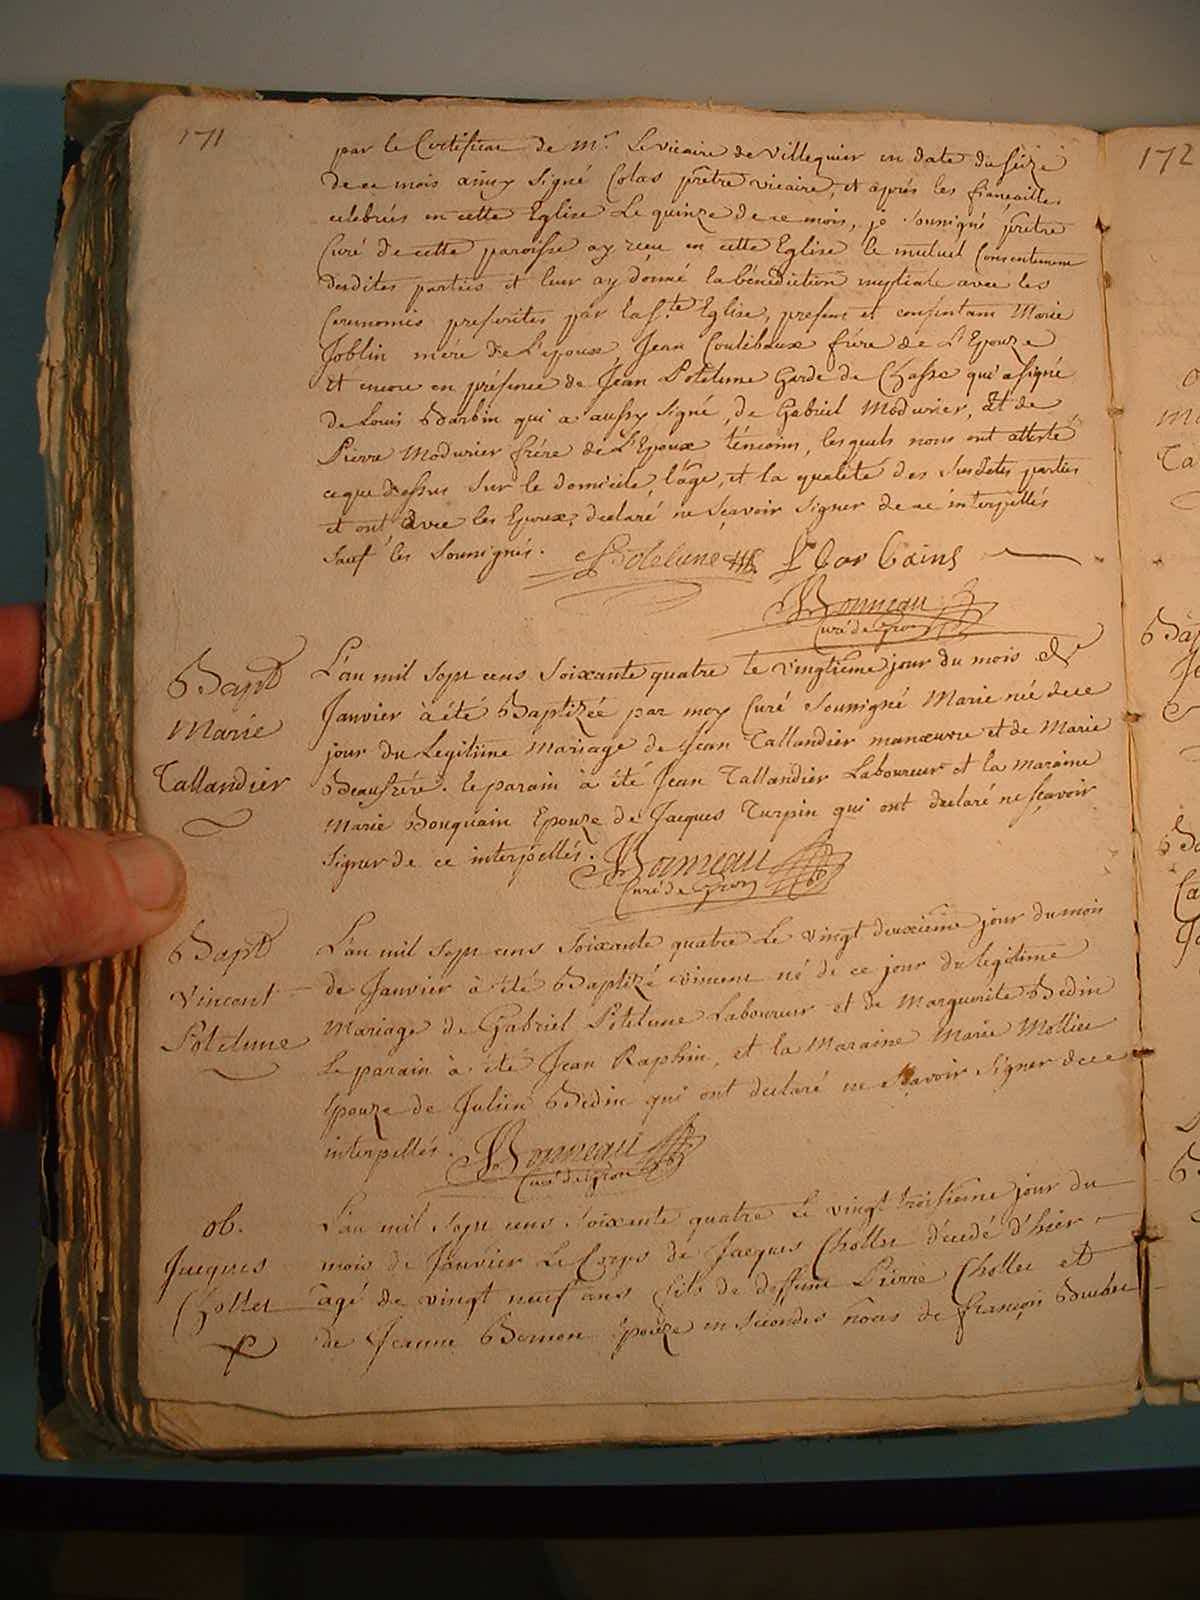 171
172
par le Certificat de Mr. Le vicaire de Villequier en date du seize
de ce mois ainsy signé Colas prêtre vicaire, et après les fiançailles
celebrées en cette Eglise Le quinze de ce mois, je soussigné prêtre
Curé de cette paroisse ay reçu en cette Eglise le mutuel Consentement
desdites parties et leur ay donné la bénédiction nuptiale avec les
Ceremonies prescrites par la Ste Eglise, present et consentant Marie
Joblin mère de L'epoux Jean Coulebaux frère de L'Epouze
Et encore en présence de Jean Potelune Garde de Chasse qui a signé
de Louis Barbin qui a aussy signé, de Gabriel Modurier, et de
Pierre Modurier frère de L'Epoux témoins, lesquels nous ont attesté
ce que dessus sur le domicile, l'âge, et la qualité des susdites parties
et ont avec les Epoux, declaré ne sçavoir signer de ce interpellés
sauf les soussignés. Potelune L Barbins
Bonneau
Curé de Gron
Bapt
Marie
Tallandier
L'an mil sept cens soixante quatre le vingtième jour du mois de
Janvier à été Baptizée par moy Curé soussigné Marie née de ce
jour du Legitime Mariage de Jean Tallandier manœuvre et de Marie
Beaufrère. le parain à été Jean Tallandier Laboureur et la maraine
Marie Bouquain Epouze de Jacques Turpin qui ont declaré ne sçavoir
signer de ce interpellés. Bonneau
Curé de Gron
Bapt
Vincent
Potelune
L'an mil sept cens soixante quatre Le vingt deuxième jour du mois
de Janvier à été Baptizé vincent né de ce jour du legitime
Mariage de Gabriel Potelune Laboureur et de Marguerite Bedin
Le parain à été Jean Raphin, et la Maraine Marie Mollier
Epouze de Julien Bedin qui ont declaré ne sçavoir signer de ce
interpellés. Bonneau
Curé de Gron
ob.
Jacques
Chollet
L'an mil sept cens soixante quatre Le vingt troisième jour du
mois de Janvier Le Corps de Jacques Chollet décedé d'hier
agé de vingt neuf ans fils de deffunt Pierre Chollet et
de Jeanne Bernon Epouze en secondes noces de françois